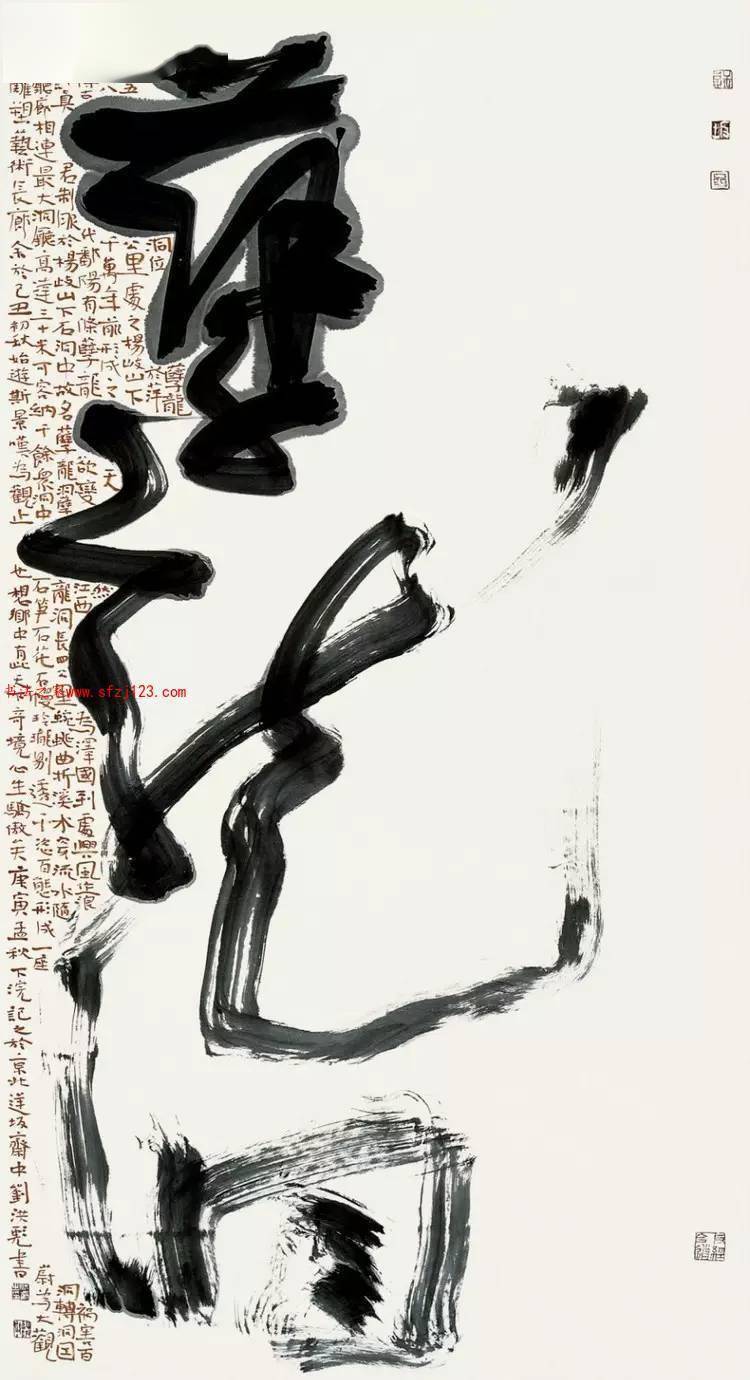 孽龍洞
孽龍
洞位於萍
公里處之楊岐山下
千萬年前形成之天
然
代鄱陽有條孽龍欲變江西為澤國到處興風作浪禍害百
君制服於楊岐山下石洞中故名孽龍洞孽龍洞長四公里蜿蜒曲折溪水穿流水隨洞轉洞回
廳廊相連最大洞廳高達三十米可容納千餘眾洞中石筍石花石幔玲瓏剔透千姿百態形成一座蔚為大觀
雕塑藝術長廊余於己丑初秋始遊斯景嘆為觀止也想鄉中有此天奇境心生驕傲矣庚寅孟秋下浣記之於京北蓮坂齋中劉洪彪書
书法之家 www.sfzj123.com